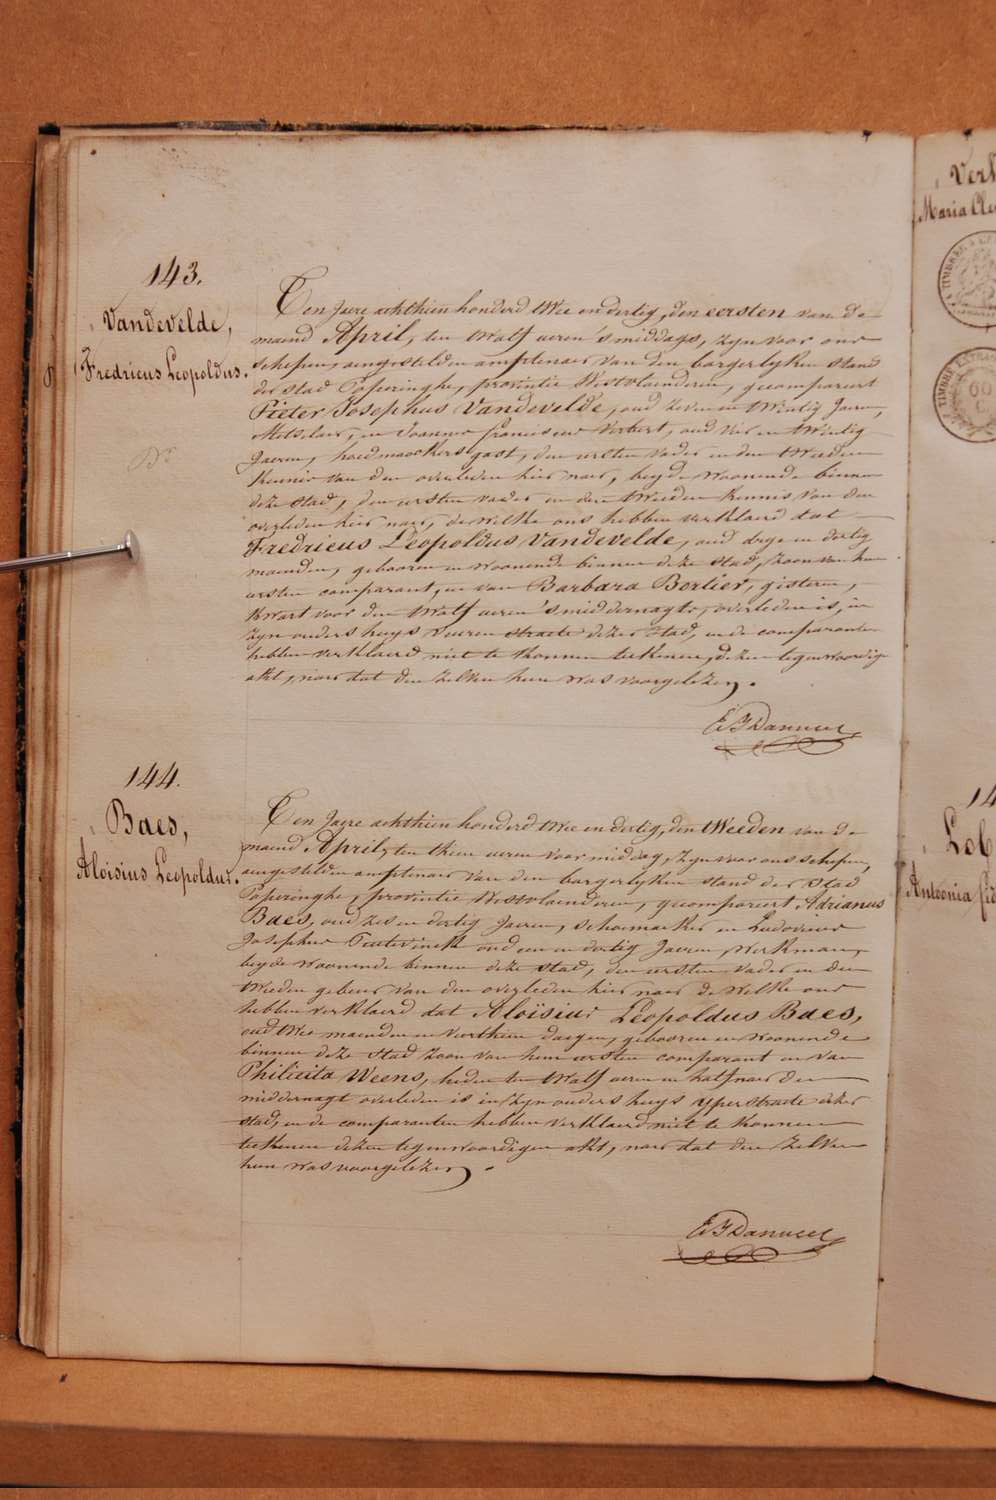 143.
Vandevelde,
Fredricus Leopoldus.
Ten Jaere achthien honderd twee en dertig, den eersten van de
maend April, ten twalf ueren 's middags, zyn voor ons
schepen, aengestelden amptenaer van den borgerlyken stand
der stad Poperinghe, provintie Westvlaenderen, gecompareert
Pieter Josephus Vandevelde, oud zeven en twintig Jaeren,
Metselaer, en Joannes franciscus Verbert, oud vier en twintig
Jaeren, hoedmaekers gast, den eersten vader en den tweeden
kennis van den overleden hier naer, beyde woonende binnen
deze stad, den eersten vader en den tweeden kennis van den
overleden hier naer, de welke ons hebben verklaerd dat
Fredricus Leopoldus Vandevelde, oud dryen dertig
maenden, gebooren en woonende binnen deze stad, zoon van hun
eersten comparant, en van Barbara Berlier, gisteren,
kwart voor den twalf ueren 's middernagts, overleden is, in
zyn ouders huys veuren straete dezer stad, en de comparanten
hebben verklaerd niet te konnen teekenen, dezen tegenwoordigen
akt, naer dat den zelven hun was voorgelezen.
144.
Baes,
Aloisius Leopoldus.
Ten Jaere achthien honderd twee en dertig, den tweeden van de
maend April, ten thien ueren voor middag, zyn voor ons schepen,
aengestelden amptenaer van den borgerlyken stand der stad
Poperinghe, provintie Westvlaenderen, gecompareert Adrianus
Baes, oud zes en dertig Jaeren, schoemaeker en Ludovicus
Josephus oud een en dertig Jaeren, werkman,
beyde woonende binnen deze stad, den eersten vader en den
tweeden gebeur van den overleden hier naer de welke ons
hebben verklaerd dat Aloïsius Leopoldus Baes,
oud twee maenden en veerthien daegen, gebooren en woonende
binnen deze stad zoon van hun eersten comparant en van
Philicita Weens, heden ten twalf ueren en half naer den
middernagt overleden is in zyn ouders huys yperstraete dezer
stad, en de comparanten hebben verklaerd niet te konnen
teekenen dezen tegenwoordigen akt, naer dat den zelven
hun was voorgelezen.
Verh
Maria Cle
14
Lob
Antoonia
60